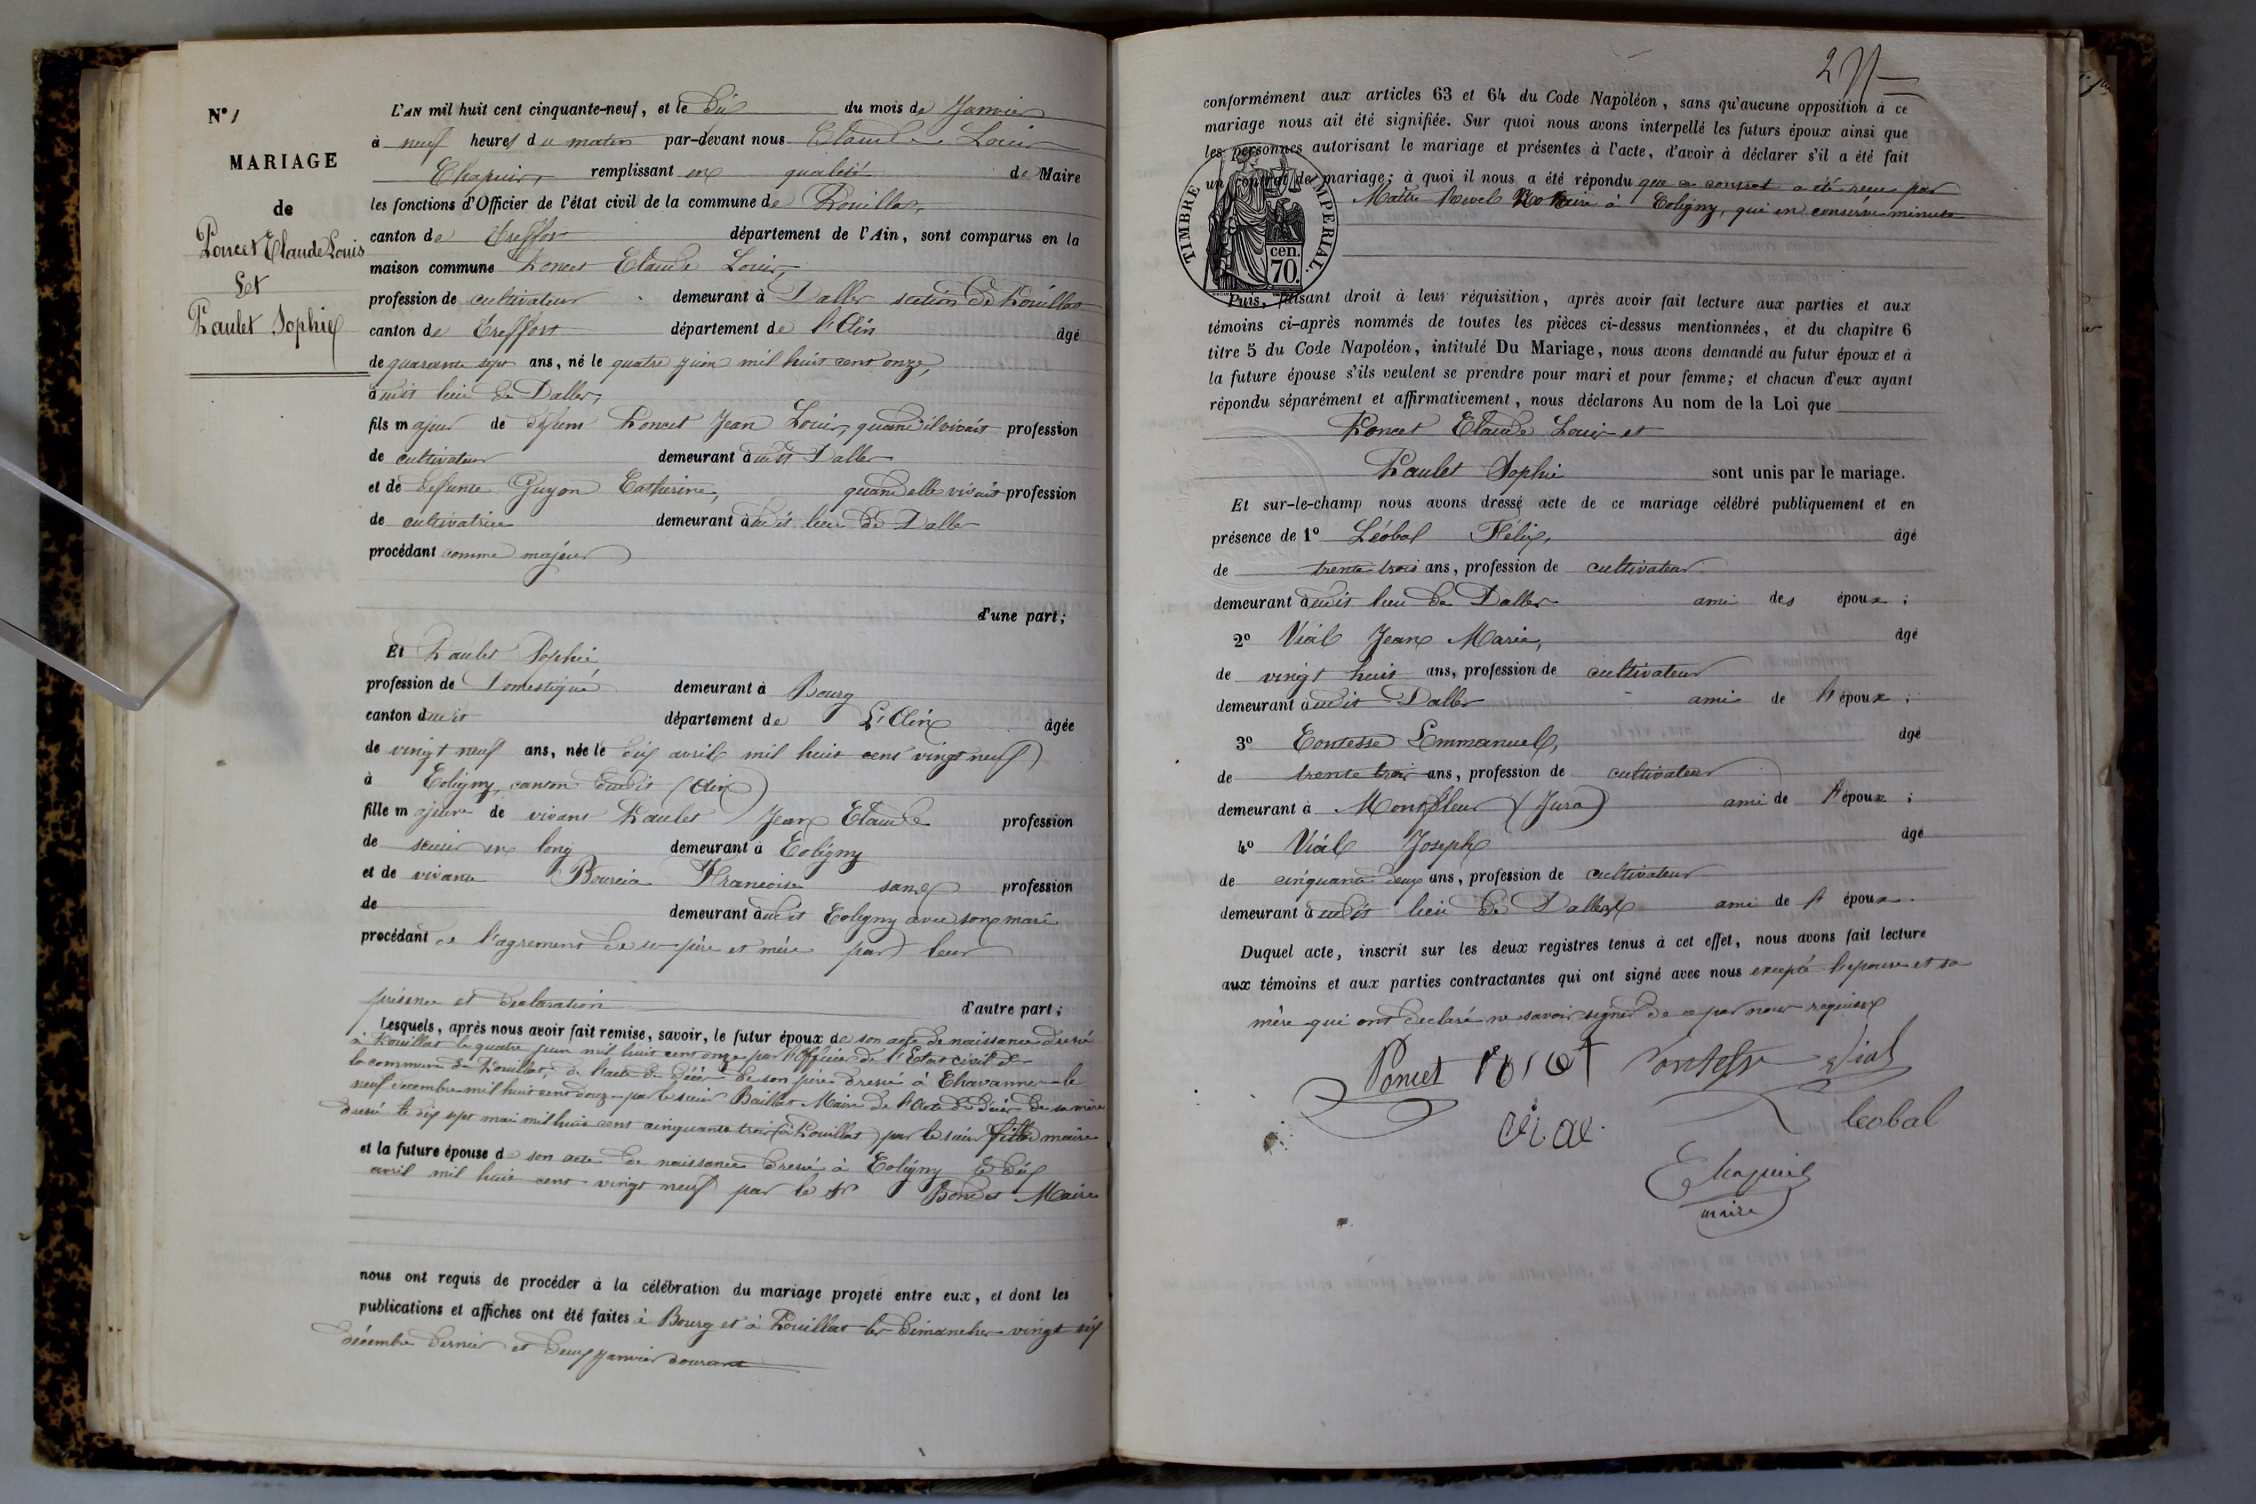 N° 1
MARIAGE
de
Poncet Claude Louis
Et
Paulet Sophie
L'AN mil huit cent cinquante-neuf, et le dix du mois de Janvier
à neuf heures du matin par-devant nous Claude Louis
Chapuis, remplissant en qualité de Maire
les fonctions d'Officier de l'état civil de la commune de Pouillat,
canton de Treffort département de l'Ain, sont comparus en la
maison commune Poncet Claude Louis,
profession de cultivateur demeurant à Daller section de Pouillat
canton de Treffort département de l'Ain âgé
de quarante sept ans, né le quatre juin mil huit cent onze,
à udit lieu de Daller,
fils majeur de défunt Poncet Jean Louis, quand il vivait profession
de cultivateur demeurant à udit Daller
et de défunte Guyon Catherine, quand elle vivait profession
de cultivatrice demeurant à udit lieu de Daller
procédant comme majeur
d'une part;
Et Paulet Sophie,
profession de Domestique demeurant à Bourg
canton dudit département de L'Ain âgée
de vingt neuf ans, née le dix avril mil huit cent vingt neuf
à Coligny, canton dudit (Ain)
fille majeure de vivant Paulet Jean Claude profession
de scieur en long demeurant à Coligny
et de vivante Bourcia Francoise sans profession
de demeurant à udit Coligny avec son mari
procédant de l'agrement de se père et mère par leur
présence et declaration d'autre part;
Lesquels, après nous avoir fait remise, savoir, le futur époux de son acte de naissance dressé
à Pouillat le quatre juin mil huit cent onze par l'Officier de l'Etat civil de
la commune de Pouillat, de l'acte de décès de son père dressé à Chavannes le
neuf decembre mil huit cent douze par le sieur Baillat Maire de l'Acte de décès de sa mère
dressé le dix sept mai mil huit cent cinquante trois (à Pouillat) par le sieur maire
et la future épouse de son acte de naissance dressé à Coligny le dix
avril mil huit cent vingt neuf par le Sr Bondet Maire
nous ont requis de procéder à la célébration du mariage projeté entre eux, et dont les
publications et affiches ont été faites à Bourg et à Pouillat les dimanches vingt six
décembre dernier et deux janvier courant
conformément aux articles 63 et 64 du Code Napoléon, sans qu'aucune opposition à ce
mariage nous ait été signifiée. Sur quoi nous avons interpellé les futurs époux ainsi que
les personnes autorisant le mariage et présentes à l'acte, d'avoir à déclarer s'il a été fait
un contrat de mariage; à quoi il nous a été répondu que ce contrat a été reçu par
Maître Revel Notaire à Coligny, qui en conserve minute
TIMBRE IMPERIAL.
cen.
70.
Puis, faisant droit à leur réquisition, après avoir fait lecture aux parties et aux
témoins ci-après nommés de toutes les pièces ci-dessus mentionnées, et du chapitre 6
titre 5 du Code Napoléon, intitulé Du Mariage, nous avons demandé au futur époux et à
la future épouse s'ils veulent se prendre pour mari et pour femme; et chacun d'eux ayant
répondu séparément et affirmativement, nous déclarons Au nom de la Loi que
Poncet Claude Louis et
Paulet Sophie sont unis par le mariage.
Et sur-le-champ nous avons dressé acte de ce mariage célébré publiquement et en
présence de 1° Léobal Félix, âgé
de trente trois ans, profession de cultivateur
demeurant à udit lieu de Daller ami des époux;
2° Vial Jean Marie, âgé
de vingt huit ans, profession de cultivateur
demeurant à udit Daller ami de l'époux;
3° Contesse Emmanuel, âgé
de trente trois ans, profession de cultivateur
demeurant à Montfleur (Jura) ami de l'époux;
4° Vial Joseph âgé
de cinquante deux ans, profession de cultivateur
demeurant à udit lieu de Daller ami de l'époux.
Duquel acte, inscrit sur les deux registres tenus à cet effet, nous avons fait lecture
aux témoins et aux parties contractantes qui ont signé avec nous excepté l'epouse et sa
mère qui ont declaré ne savoir signer de ce par nous requises
Poncet Contesse Vial
Vial leobal
Chapuis
maire